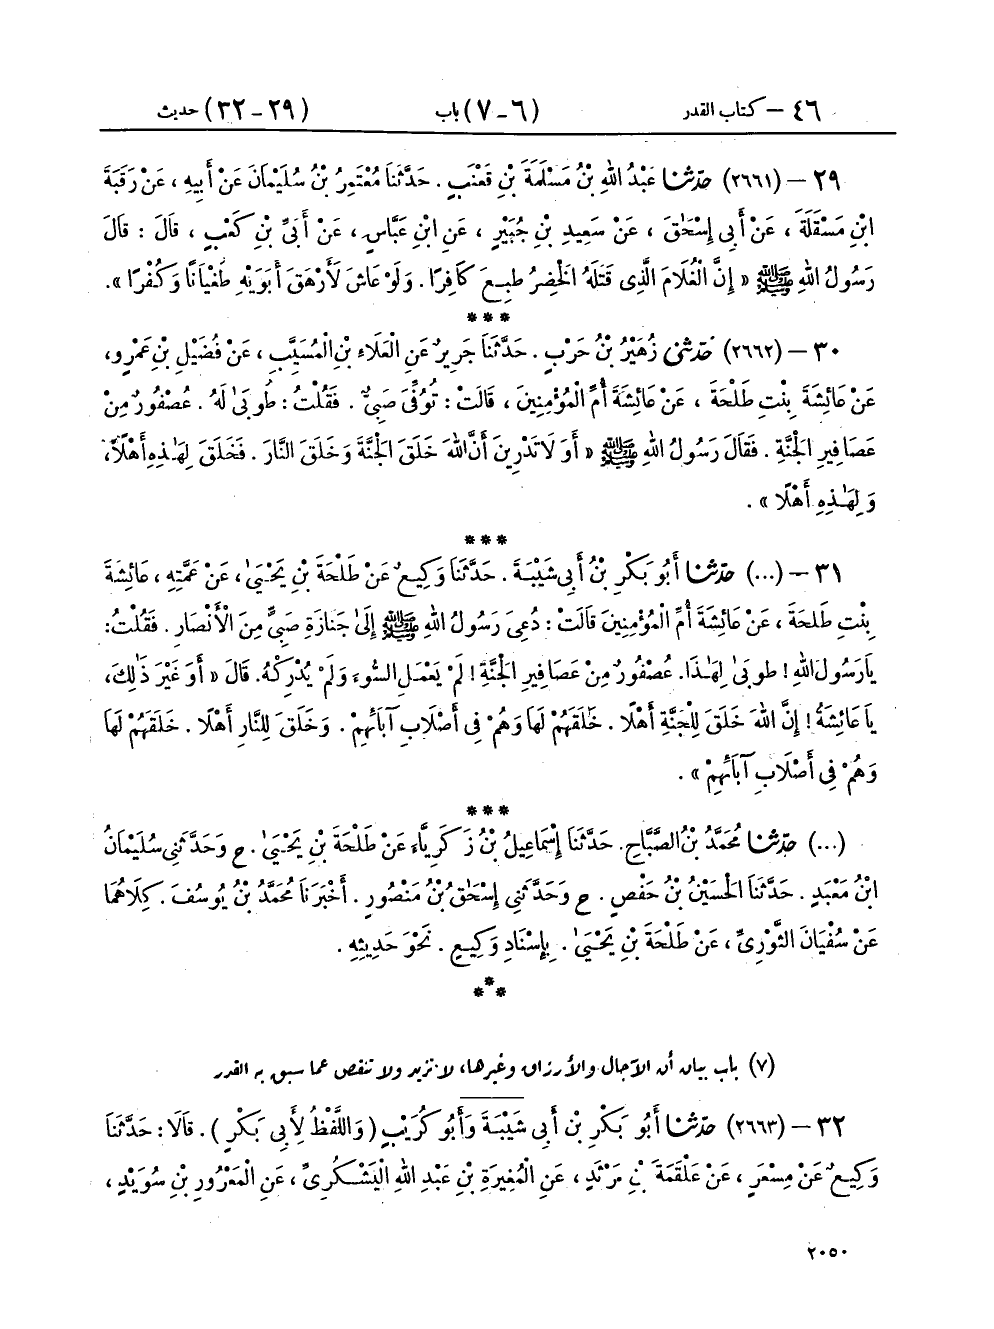 ٤٦ – كتاب القدر (٦ – ٧) باب (٢٩ – ٣٢) حديث
٢٩ – (٢٦٦١) حَدَّثَنَا عَبْدُ اللهِ بْنُ مَسْلَمَةَ بْنِ قَعْنَبٍ. حَدَّثَنَا مُعْتَمِرُ بْنُ سُلَيْمَانَ عَنْ أَبِيهِ، عَنْ رَقَبَةَ
ابْنِ مَسْقَلَةَ، عَنْ أَبِي إِسْحَٰقَ، عَنْ سَعِيدِ بْنِ جُبَيْرٍ، عَنِ ابْنِ عَبَّاسٍ، عَنْ أُبَيِّ بْنِ كَعْبٍ، قَالَ: قَالَ
رَسُولُ اللهِ ﷺ «إِنَّ الْغُلَامَ الَّذِي قَتَلَهُ الْخَضِرُ طُبِعَ كَافِرًا. وَلَوْ عَاشَ لَأَرْهَقَ أَبَوَيْهِ طُغْيَانًا وَكُفْرًا».
***
٣٠ – (٢٦٦٢) حَدَّثَنِي زُهَيْرُ بْنُ حَرْبٍ. حَدَّثَنَا جَرِيرٌ عَنِ الْعَلَاءِ بْنِ الْمُسَيَّبِ، عَنْ فُضَيْلِ بْنِ عَمْرٍو،
عَنْ عَائِشَةَ بِنْتِ طَلْحَةَ، عَنْ عَائِشَةَ أُمِّ الْمُؤْمِنِينَ، قَالَتْ: تُوُفِّيَ صَبِيٌّ. فَقُلْتُ: طُوبَىٰ لَهُ. عُصْفُورٌ مِنْ
عَصَافِيرِ الْجَنَّةِ. فَقَالَ رَسُولُ اللهِ ﷺ «أَوَ لَا تَدْرِينَ أَنَّ اللهَ خَلَقَ الْجَنَّةَ وَخَلَقَ النَّارَ. فَخَلَقَ لِهَٰذِهِ أَهْلًا،
وَلِهَٰذِهِ أَهْلًا».
***
٣١ – (...) حَدَّثَنَا أَبُو بَكْرِ بْنُ أَبِي شَيْبَةَ. حَدَّثَنَا وَكِيعٌ عَنْ طَلْحَةَ بْنِ يَحْيَىٰ، عَنْ عَمَّتِهِ، عَائِشَةَ
بِنْتِ طَلْحَةَ، عَنْ عَائِشَةَ أُمِّ الْمُؤْمِنِينَ قَالَتْ: دُعِيَ رَسُولُ اللهِ ﷺ إِلَىٰ جَنَازَةِ صَبِيٍّ مِنَ الْأَنْصَارِ. فَقُلْتُ:
يَا رَسُولَ اللهِ! طُوبَىٰ لِهَٰذَا. عُصْفُورٌ مِنْ عَصَافِيرِ الْجَنَّةِ! لَمْ يَعْمَلِ السُّوءَ وَلَمْ يُدْرِكْهُ. قَالَ «أَوَ غَيْرَ ذَٰلِكَ،
يَا عَائِشَةُ! إِنَّ اللهَ خَلَقَ لِلْجَنَّةِ أَهْلًا. خَلَقَهُمْ لَهَا وَهُمْ فِي أَصْلَابِ آبَائِهِمْ. وَخَلَقَ لِلنَّارِ أَهْلًا. خَلَقَهُمْ لَهَا
وَهُمْ فِي أَصْلَابِ آبَائِهِمْ».
***
(...) حَدَّثَنَا مُحَمَّدُ بْنُ الصَّبَّاحِ. حَدَّثَنَا إِسْمَاعِيلُ بْنُ زَكَرِيَّاءَ عَنْ طَلْحَةَ بْنِ يَحْيَىٰ. ح وَحَدَّثَنِي سُلَيْمَانُ
ابْنُ مَعْبَدٍ. حَدَّثَنَا الْحُسَيْنُ بْنُ حَفْصٍ. ح وَحَدَّثَنِي إِسْحَٰقُ بْنُ مَنْصُورٍ. أَخْبَرَنَا مُحَمَّدُ بْنُ يُوسُفَ. كِلَاهُمَا
عَنْ سُفْيَانَ الثَّوْرِيِّ، عَنْ طَلْحَةَ بْنِ يَحْيَىٰ. بِإِسْنَادِ وَكِيعٍ. نَحْوَ حَدِيثِهِ.
***
(٧) باب بيان أن الآجال والأرزاق وغيرها، لا تزيد ولا تنقص عما سبق به القدر
٣٢ – (٢٦٦٣) حَدَّثَنَا أَبُو بَكْرِ بْنِ أَبِي شَيْبَةَ وَأَبُو كُرَيْبٍ (وَاللَّفْظُ لِأَبِي بَكْرٍ). قَالَا: حَدَّثَنَا
وَكِيعٌ عَنْ مِسْعَرٍ، عَنْ عَلْقَمَةَ بْنِ مَرْثَدٍ، عَنِ الْمُغِيرَةِ بْنِ عَبْدِ اللهِ الْيَشْكُرِيِّ، عَنِ الْمَعْرُورِ بْنِ سُوَيْدٍ،
٢٠٥٠